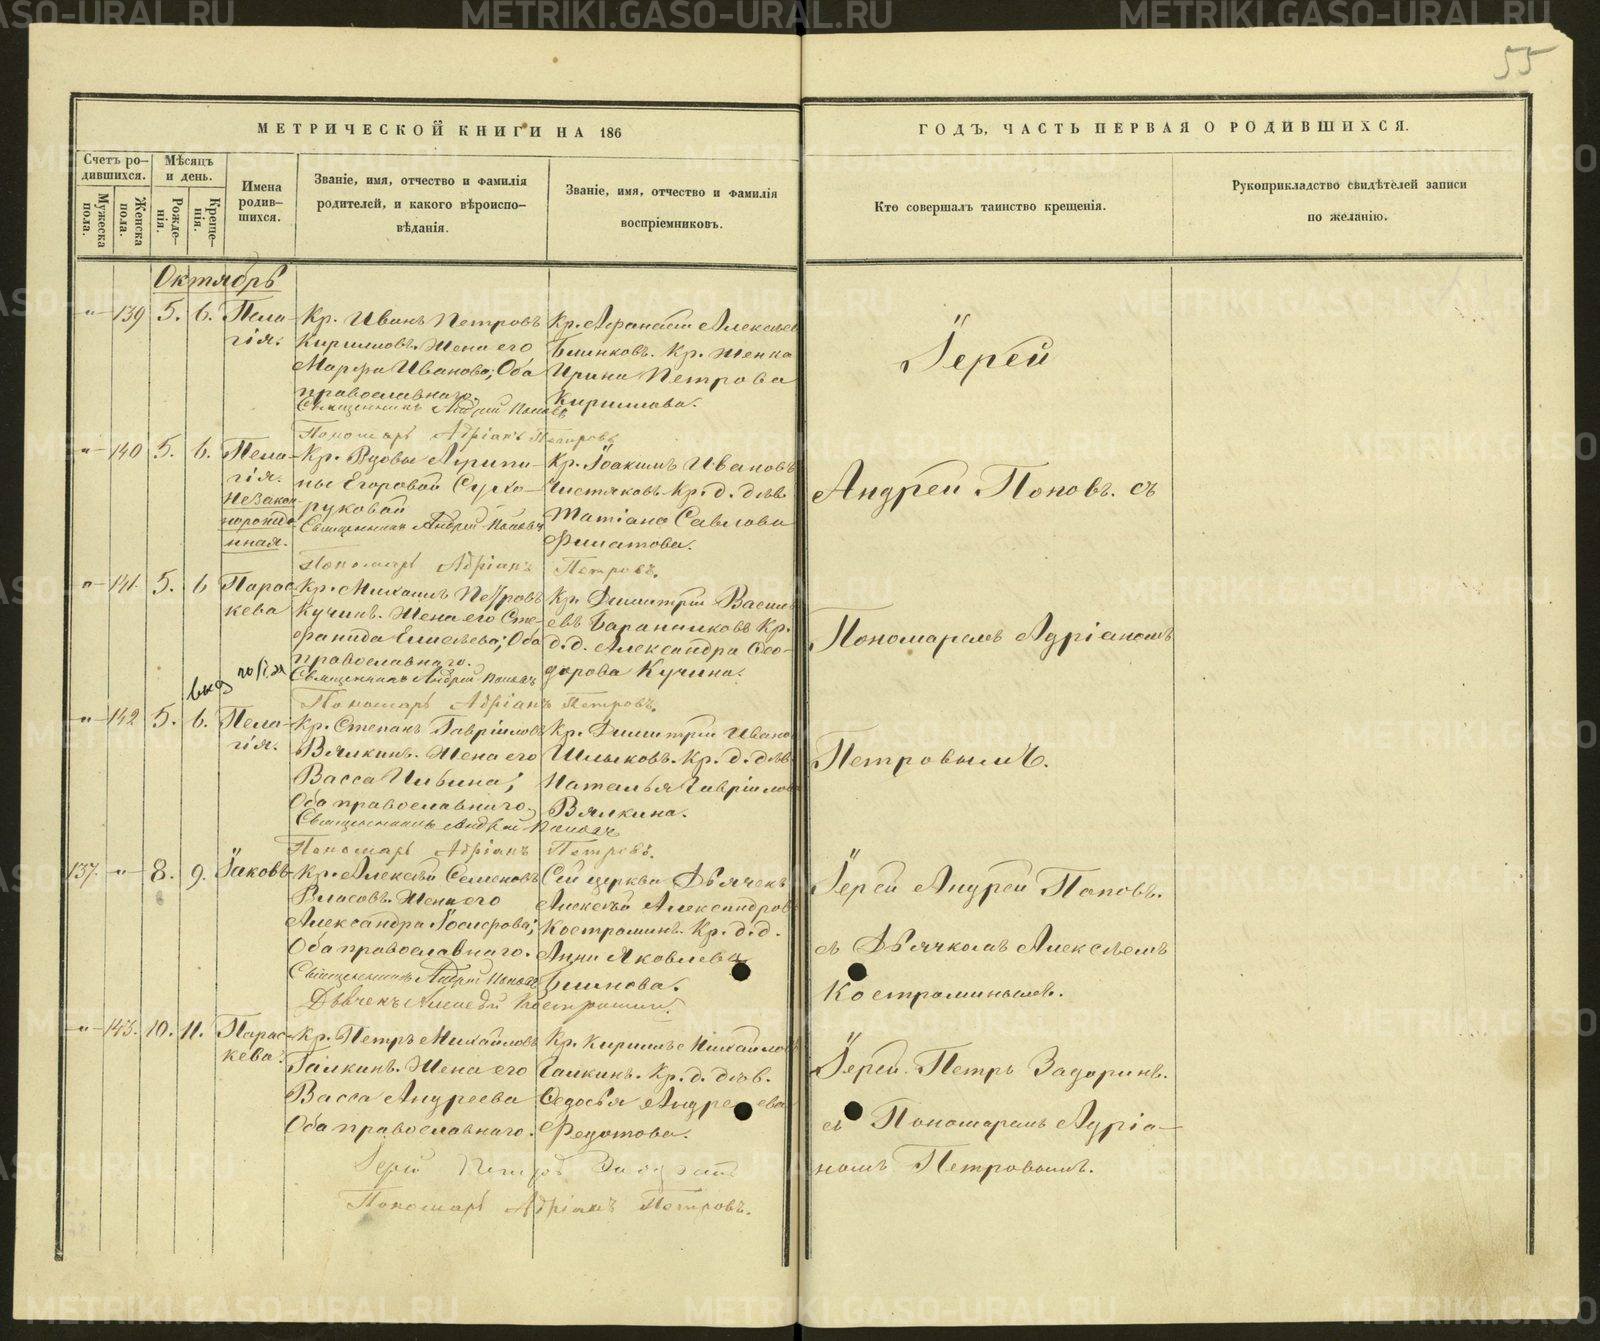 55
МЕТРИЧЕСКОЙ КНИГИ НА 186
ГОДЪ, ЧАСТЬ ПЕРВАЯ О РОДИВШИХСЯ.
Счетъ ро-
дившихся.
Мужеска
пола.
Женска
пола.
Мѣсяцъ
и день.
Рожде-
нія.
Креще-
нія.
Имена
родив-
шихся.
Званіе, имя, отчество и фамилія
родителей, и какого вѣроиспо-
вѣданія.
Званіе, имя, отчество и фамилія
воспріемниковъ.
Кто совершалъ таинство крещенія.
Рукоприкладство свидѣтелей записи
по желанію.
Октябрь
„ 139 5. 6. Пела-
гія.
Кр. Иванъ Петровъ
Кирилловъ. Жена его
Марфа Иванова; Оба
православнаго.
Священникъ Андрей Поповъ
Пономарь Адріанъ Петровъ
Кр. Афанасій Алексѣев
Блинковъ. Кр. женка
Ирина Петрова
Кириллова.
Іерей
„ 140 5. 6. Пела-
гія.
Незакон
норожде
нная.
Кр. Вдовы Агрипи-
ны Егоровой Сухо-
руковой
Священникъ Андрей Поповъ
Пономарь Адріанъ Петровъ.
Кр. Іоакимъ Ивановъ
Чистяковъ. Кр. д. дѣв.
Татіана Савлова
Филатова.
Андрей Поповъ. съ
„ 141. 5. 6 Парас-
кева
Кр. Михаилъ Петровъ
Кучинъ. Жена его Сте-
фанида Елисѣева; Оба
православнаго.
Священникъ Андрей Поповъ
Пономарь Адріанъ Петровъ.
Кр. Димитрій Васил
евъ Баранниковъ Кр.
д. д. Александра Ѳео-
дорова Кучина.
Пономаремъ Адріаномъ
„ 142 5. 6. Пела-
гія.
Кр. Степанъ Гавріиловъ
Вялкинъ. Жена его
Васса Ильина;
Оба православнаго.
Священникъ Андрей Поповъ
Пономарь Адріанъ Петровъ.
Кр. Димитрій Ивано
Шлыковъ. Кр. д. дѣв.
Наталья Гавріилова
Вялкина.
Петровымъ.
137. „ 8. 9. Іаковъ
Кр. Алексѣй Семеновъ
Власовъ. Жена его
Александра Іосифова;
Оба православнаго.
Священникъ Андрей Поповъ
Дьячекъ Алексѣй Костроминъ.
Сей церкви Дьячекъ
Алексѣй Александров
Костроминъ. Кр. д. д.
Анна Яковлева
Блинова.
Іерей Андрей Поповъ.
съ Дьячкомъ Алексѣемъ
Костроминымъ.
„ 143. 10. 11. Парас-
кева.
Кр. Петръ Михайловъ
Галкинъ. Жена его
Васса Андреева
Оба православнаго.
Іерей Петръ Задоринъ
Пономарь Адріанъ Петровъ.
Кр. Кириллъ Михайлов
Галкинъ. Кр. д. дѣв.
Ѳедосья Андреева
Федотова.
Іерей Петръ Задоринъ.
съ Пономаремъ Адріа-
номъ Петровымъ.
METRIKI.GASO-URAL.RU